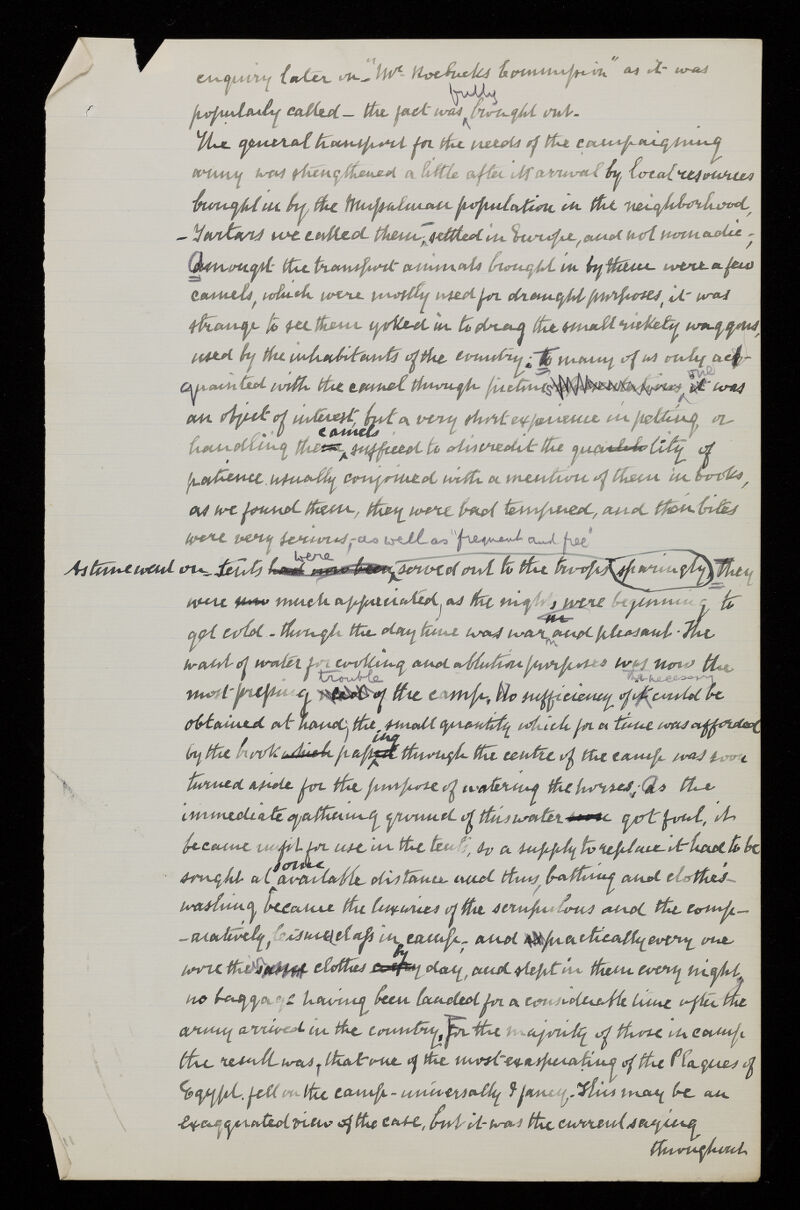 enquiry later on - "Mr. Roebucks Commission" as it was
fully
popularly called - the fact was brought out -
The general transport for the needs of the campaigning
army was strengthened a little after its arrival by local resources
brought in by the Mussalman population in the neighborhood,
- Tartars we called them -, settled in Europe, and not nomadic -;
Amongst the transport animals brought in by them were a few
camels, which were mostly used for draught purposes, it was
strange to see them yoked in to drag the small rickety waggons,
used by the inhabitants of the country; to many of us only ac-
quainted with the camel through pictures one it was
an object of interest, but a very short experience in petting or
camels
handling the sufficed to discredit the quality of
patience usually conjoined with a mention of them in books,
as we found them, they were bad tempered, and their bites
were very serious, - as well as "frequent and free"
As time went on - tents had now been were served out to the troops sparingly, they
were now much appreciated, as the nights were beginning to
get cold - though the day time was warm and pleasant. The
want of water for cooking and ablution purposes was now the
trouble the necessary
most pressing of the camp. No sufficiency of it could be
obtained at hand, the small quantity which for a time was afforded
ing
by the brook which passed through the centre of the camp was soon
turned aside for the purpose of watering the horses; As the
immediate gathering ground of this water soon got foul, it
became unfit for use in the tents, so a supply to replace it had to be
some
sought at available distance and thus, bathing and clothes-
washing became the luxuries of the scrupulous and the comp-
-aratively, leisured class in camp; and practically every one
by
wore the same clothes every day, and slept in them every night,
no baggage having been landed for a considerable time after the
army arrived in the country. For the majority of those in camp
the result was, that one of the most exasperating of the Plagues of
Egypt, fell on the camp - universally I fancy. This may be an
exaggerated view of the case, but it was the current saying
throughout